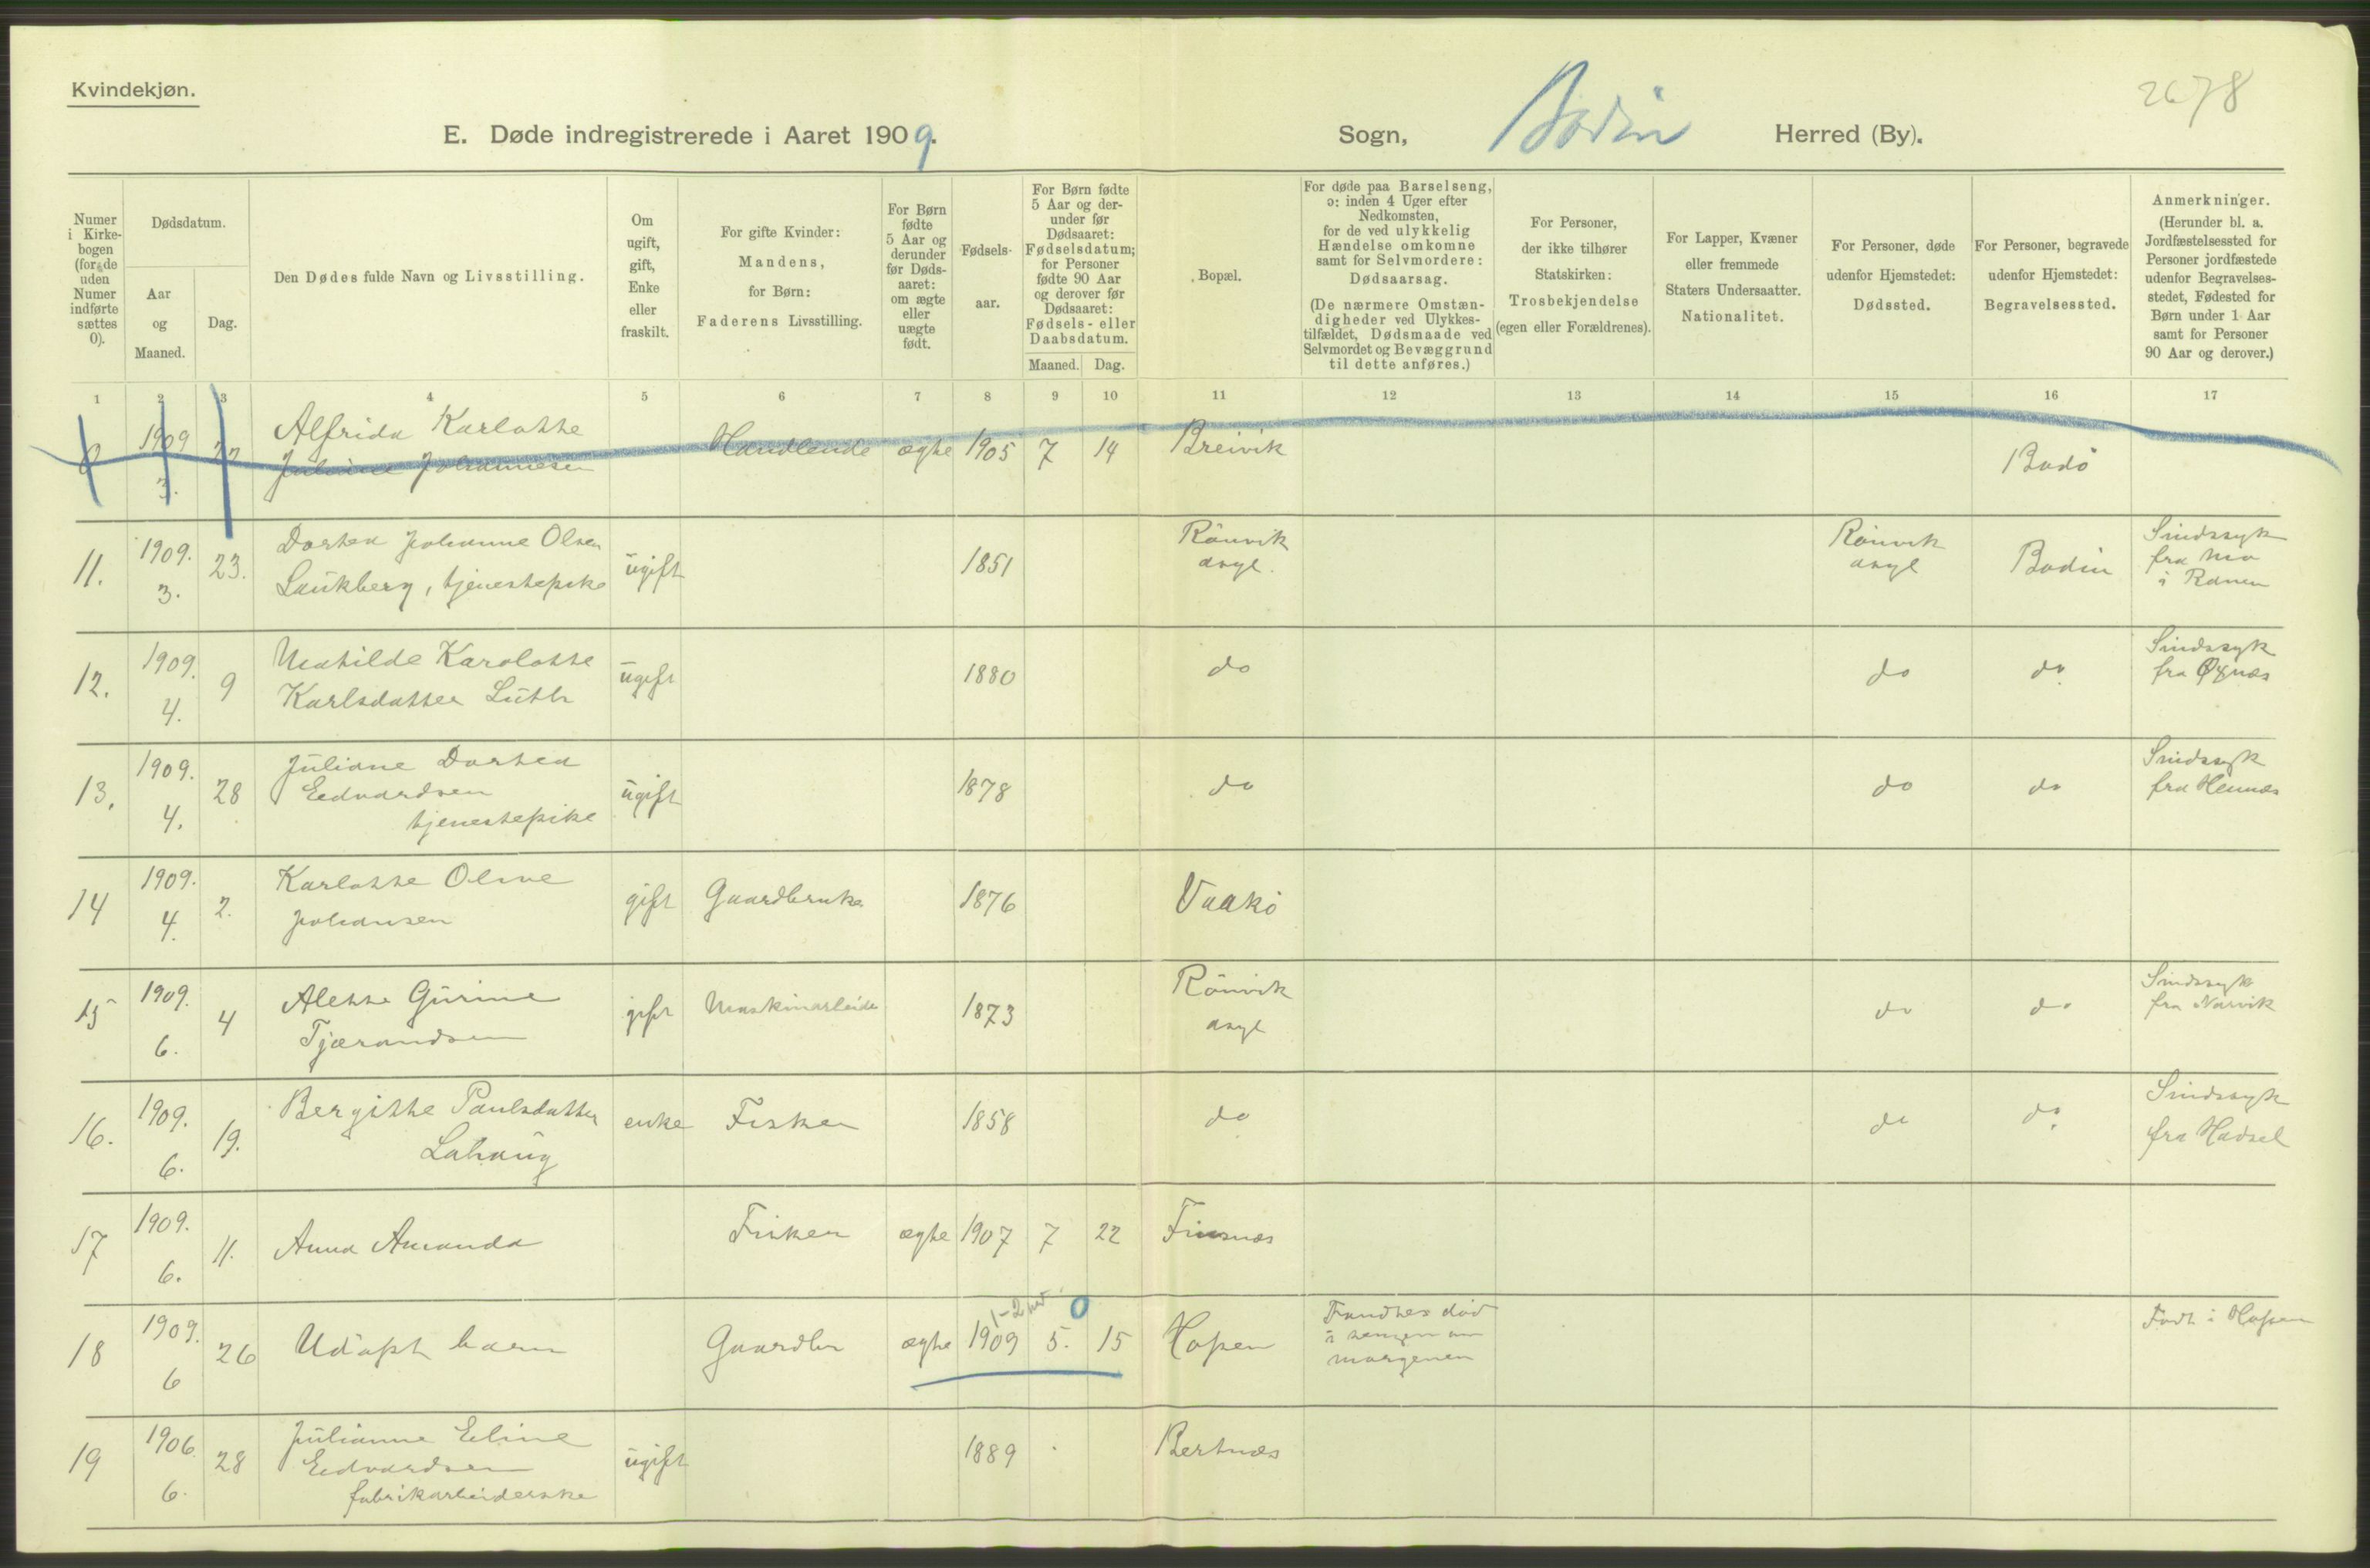 Kvindekjøn.
2678
E. Døde indregistrerede i Aaret 1909. Sogn, Bodin Herred (By).
Numer i Kirkebogen (for de uden Numer indførte sættes 0).
Dødsdatum.
Aar og Maaned.
Dag.
Den Dødes fulde Navn og Livsstilling.
Om ugift, gift, Enke eller fraskilt.
For gifte Kvinder: Mandens, for Børn: Faderens Livsstilling.
For Børn fødte 5 Aar og derunder før Dødsaaret: om ægte eller uægte født.
Fødselsaar.
For Børn fødte 5 Aar og derunder før Dødsaaret: Fødselsdatum; for Personer fødte 90 Aar og derover før Dødsaaret: Fødsels- eller Daabsdatum.
Maaned. Dag.
Bopæl.
For døde paa Barselseng, ɔ: inden 4 Uger efter Nedkomsten, for de ved ulykkelig Hændelse omkomne samt for Selvmordere: Dødsaarsag.
(De nærmere Omstændigheder ved Ulykkestilfældet, Dødsmaade ved Selvmordet og Bevæggrund til dette anføres.)
For Personer, der ikke tilhører Statskirken: Trosbekjendelse (egen eller Forældrenes).
For Lapper, Kvæner eller fremmede Staters Undersaatter. Nationalitet.
For Personer, døde udenfor Hjemstedet: Dødssted.
For Personer, begravede udenfor Hjemstedet: Begravelsessted.
Anmerkninger.
(Herunder bl. a. Jordfæstelsessted for Personer jordfæstede udenfor Begravelsesstedet, Fødested for Børn under 1 Aar samt for Personer 90 Aar og derover.)
1 2 3 4 5 6 7 8 9 10 11 12 13 14 15 16 17
0 1909 3. 27 Alfrida Karlotte Juliane Johannesen Handlende ægte 1905 7 14 Breivik Bodö
11. 1909. 3. 23. Dortea Johanne Olsen Laukberg, tjenestepike ugift 1851 Rönvik asyl. Rönvik asyl Bodin Sindssyk fra Mo i Ranen
12. 1909. 4. 9 Matilde Karolotte Karlsdatter ugift 1880 do do do Sindssyk fra Øxnæs
13. 1909. 4. 28 Juliane Dortea Edvardsen tjenestepike ugift 1878 do do do Sindssyk fra Hemnæs
14 1909. 4. 2. Karlotte Oline Johansen gift Gaardbruker 1876 Vaakö
15 1909. 6. 4 Alette Gurine Tjærandsen gift Maskinarbeider 1873 Rönvik asyl do do Sindssyk fra Narvik
16. 1909. 6. 19. Bergitte Paulsdatter Lahaug enke Fisker 1858 do do do Sindssyk fra Hadsel
17 1909. 6. 11. Anna Amanda Fisker ægte 1907 7 22
18 1909. 6 26 Udöpt barn Gaardbr ægte 1-2 0 1909 5. 15 Hopen Fandtes död i sengen om morgenen Född i Hopen
19 1906 6. 28 Julianne Eline Edvardsen fabrikarbeiderske ugift 1889 Bertnæs